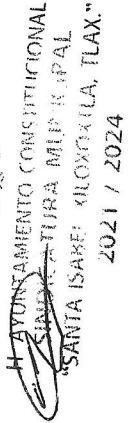 H. AYUNTAMIENTO CONSTITUCIONAL
SINDICATURA MUNICIPAL
"SANTA ISABEL XILOXOXTLA, TLAX."
2021 / 2024